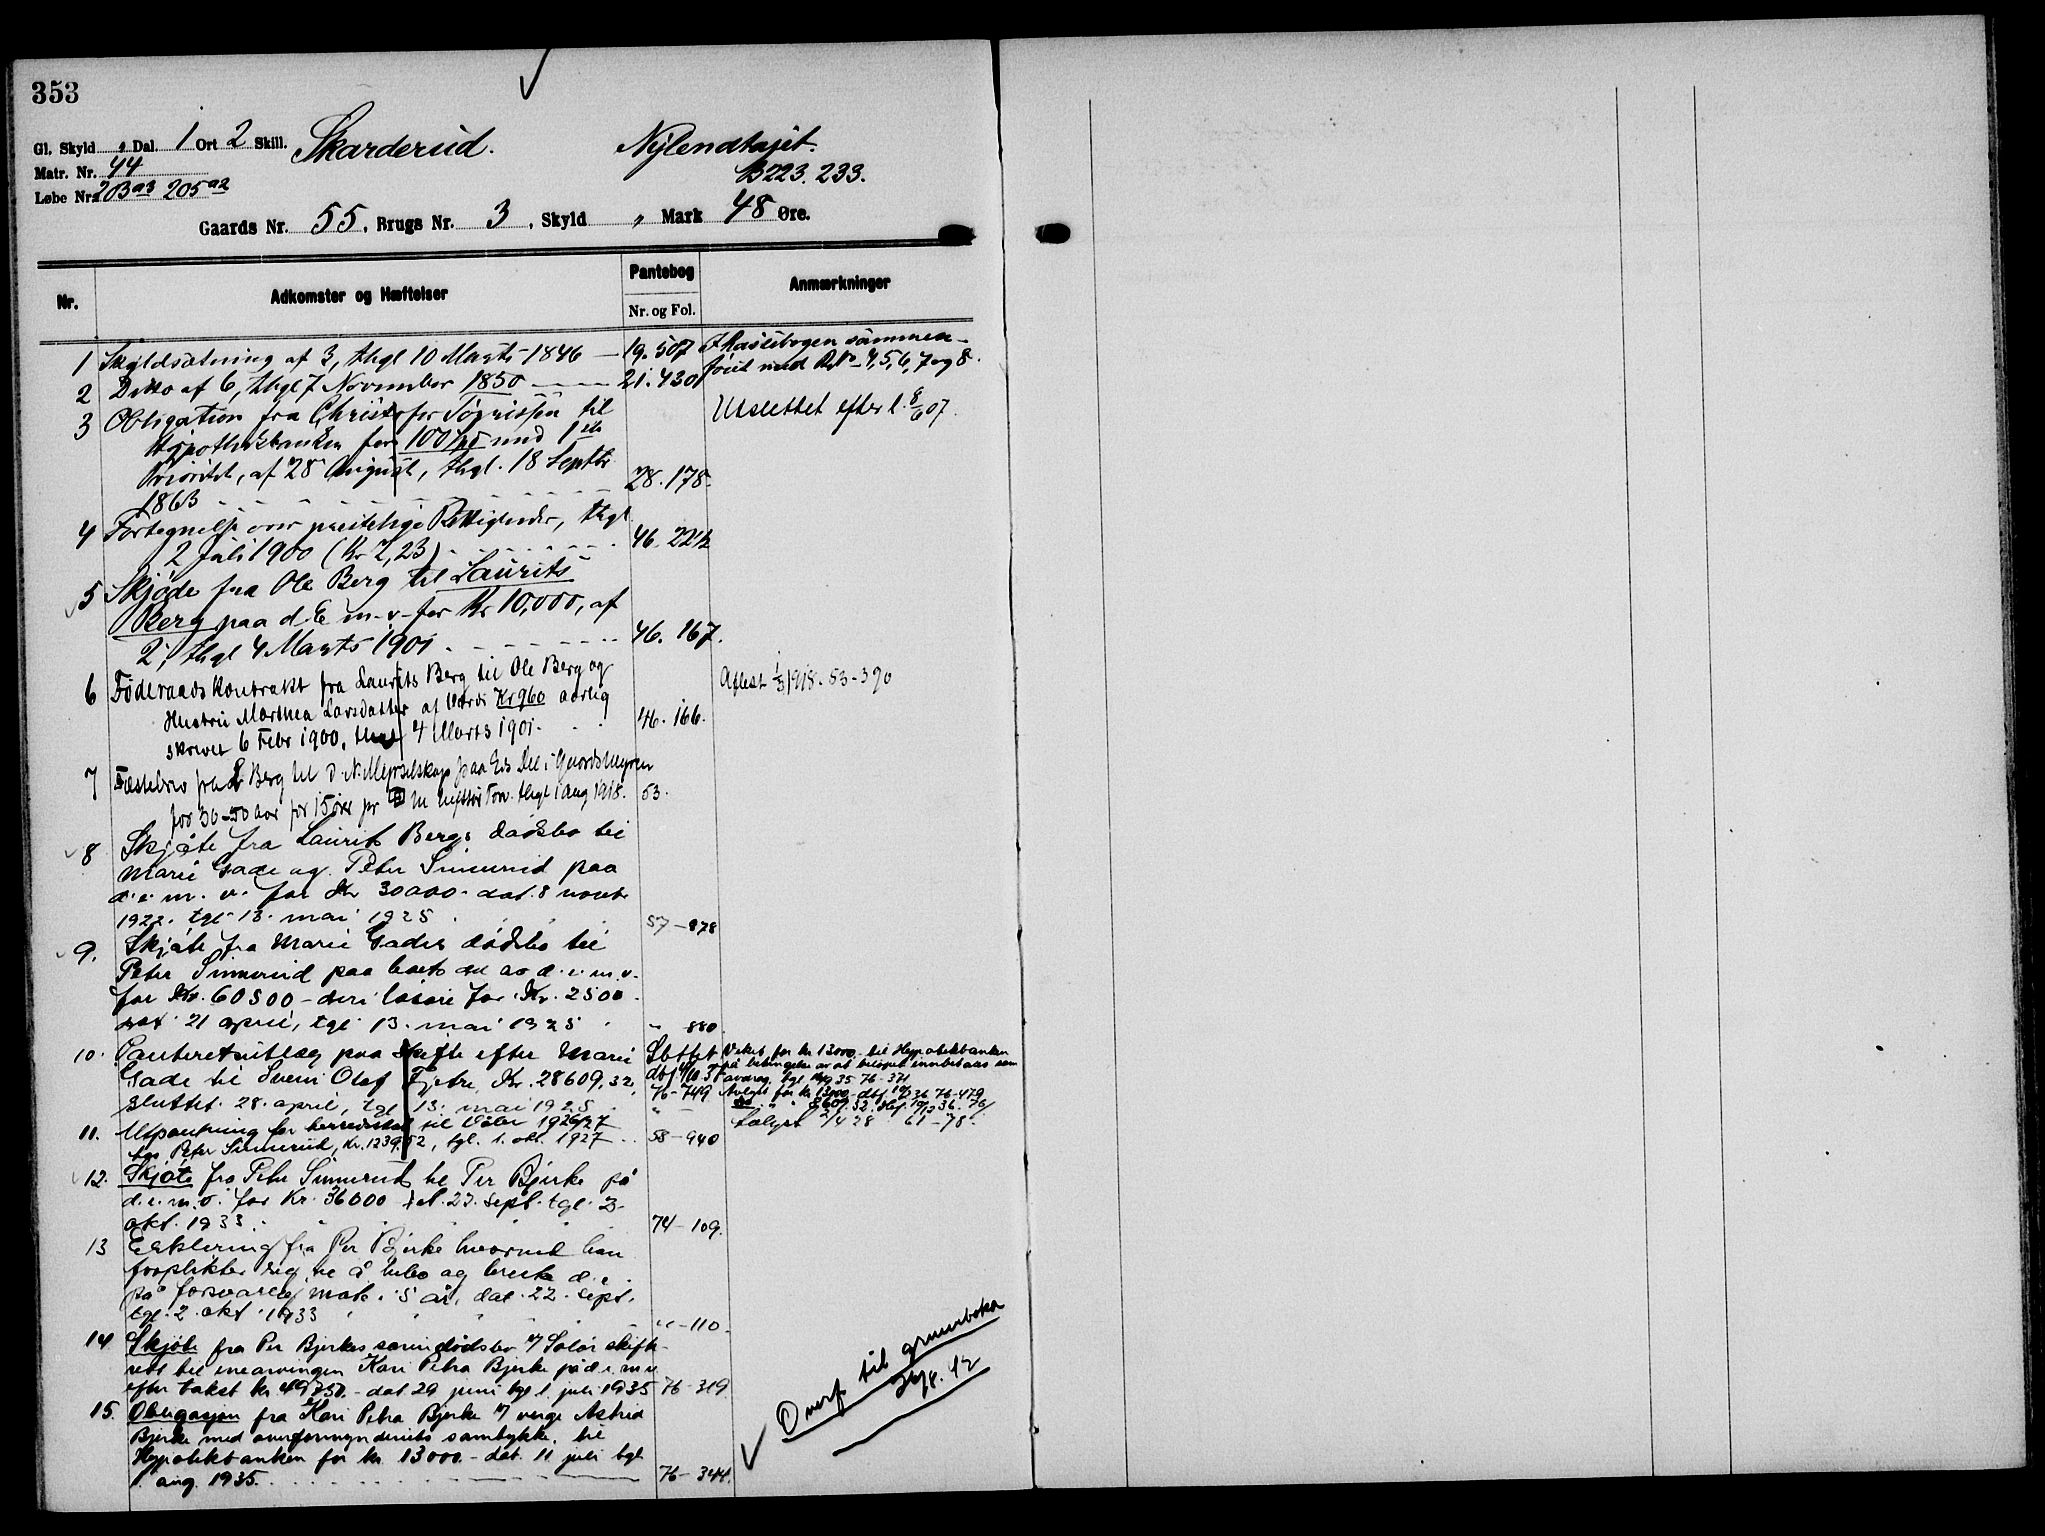 353
Gl. Skyld „ Dal. 1 Ort 2 Skill. Skarderud. Nylendtajet.
Matr. Nr. 44 B223. 233.
Løbe Nr. 203a3 205a2
Gaards Nr. 55, Brugs Nr. 3, Skyld „ Mark 48 Øre.
Nr. Adkomster og Hæftelser Pantebog Anmærkninger
Nr. og Fol.
1 Skyldsætning af 3, thgl 10 Marts 1846 19. 507 I Kassebogen sammen-
2 Ditto af 6, thgl 7 November 1850 21. 430 føiet med 4, 5, 6, 7 og 8.
3 Obligation fra Christofer til Udslettet efter l. 8/6 07.
Hypothekbanken for 100 Spd med 1ste
Prioritet, af 28 August, thgl. 18 Septbr
1863 28. 178.
4 Fortegnelse over præstelige Rettigheder, thgl
2 Juli 1900 (Kr 2,23) 46. 22½
5 Skjøde fra Ole Berg til Laurits
Berg paa d. E m. v. for Kr 10,000, af
2, thgl 4 Marts 1901 46. 167.
6 Føderaadskontrakt fra Laurits Berg til Ole Berg og Aflest 1/3 1918. 53-390
Hustru Marthea Larsdatter af Værdi Kr 960 aarlig
skrevet 6 Febr 1900, thgl 4 Marts 1901. 46. 166.
7 Fæstebrev fra L Berg til D. N. Myrselskap paa Eds Del i
for 30-50 aar for 15 øre pr thgl 1 Aug 1918. 53.
8 Skjøte fra Laurits Bergs dødsbo til
Marie Gade og Peter Simerud paa
d. e. m. v. for Kr 30000. dat. 8 novbr
1922. tgl. 13. mai 1925 57-878
9. Skjøte fra Marie Gades dødsbo til
Peter Simerud paa boets del av d. e. m. v.
for Kr. 60500 - deri løsøre for Kr. 2500.
dat. 21 april, tgl. 13. mai 1925 „ 880.
10. Panteretsutlæg paa skifte efter Marie Slettet Veket for kr 13000 til Hypotekbanken
Gade til Svein Olaf Fjetre, Kr. 28609,32, på betingelse av at beløpet innbetales som
sluttet 28. april, tgl. 13. mai 1925 76-749 avdrag, tgl. 35 76-371
11. Utpantning for herredsskat til Våler 1926/27 Avlyst for kr 13000
hos Peter Simerud, Kr. 1239,52, tgl. 1. okt. 1927 58-940 2/4 28 61-78.
12. Skjøte fra Peter Simerud til Per Bjerke på
d. e. m. v. for Kr. 36000 dat. 23. sept. tgl. 2.
okt. 1933. 74-109.
13 Erklæring fra Per Bjerke hvorved han
forplikter sig til å bebo og bruke d. e.
på forsvarlig måte i 5 år, dat. 22. sept.
tgl. 2. okt. 1933 „-110.
14 Skjøte fra Per Bjerkes dødsbo v/ Solør skifte-
rett til enearvingen Kari Petra Bjerke på d. e. m. v.
efter takst kr 49750.- dat 29 juni tgl 1. juli 1935 76-319.
15. Obligasjon fra Kari Petra Bjerke v/ verge Astrid
Bjerke med overformynderiets samtykke, til
Hypotekbanken for kr 13000.- dat. 11 juli tgl
1. aug. 1935. 76-344.
Overf. til grunnboka